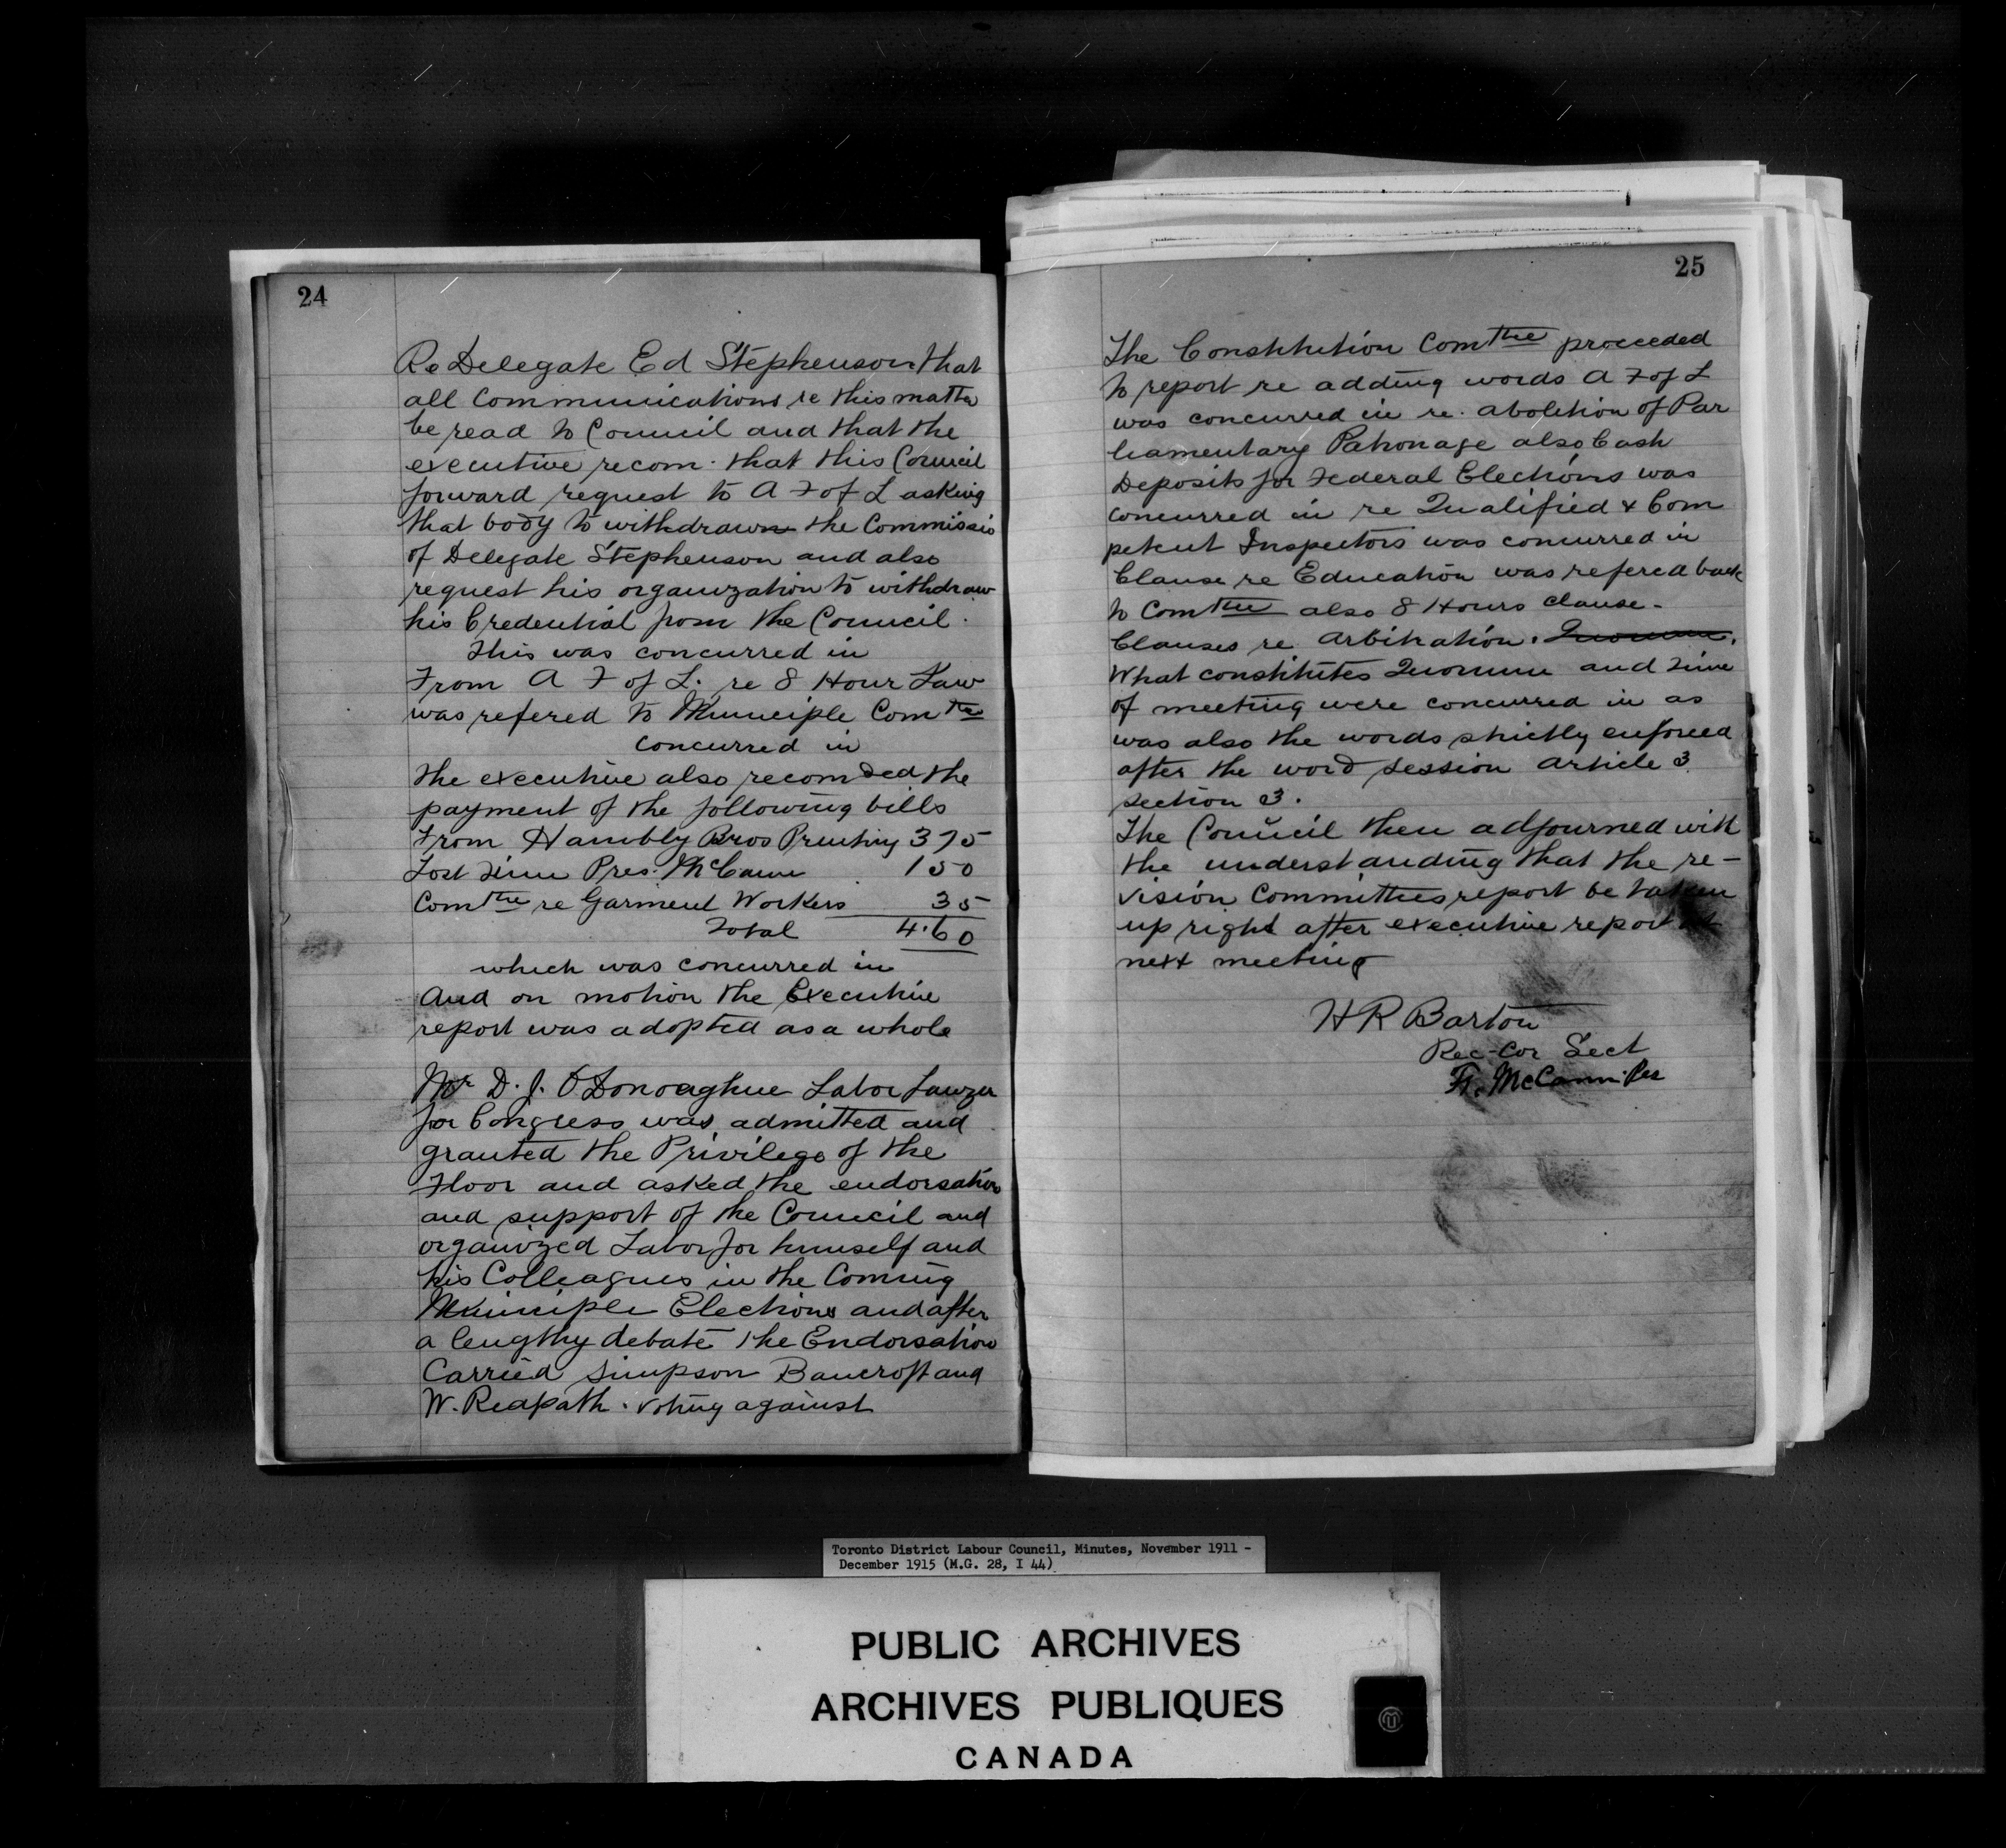 24
Re Delegate Ed Stephenson that
all Communications re this matter
be read to Council and that the
executive recom. that this Council
forward request to A F of L asking
that body to withdrawn the Commissio
of Delegate Stephenson and also
request his organization to withdraw
his Credential from the Council.
This was concurred in
From A F of L. re 8 Hour Law
was refered to Municiple Comtee
concurred in
the executive also recomded the
payment of the following bills
From Hambly Bros Printing 375
Lost Time Pres. McCann 150
Comttee re Garment Workers 35
Total 4.60
which was concurred in
And on motion the Executive
report was adopted as a whole
Mr D. J. O'Donoaghue Labor Lawyer
for Congress was admitted and
granted the Privilege of the
Floor and asked the endorsation
and support of the Council and
organized Labor for himself and
his Colleagues in the Coming
Municiple Elections and after
a lengthy debate the Endorsation
Carried Simpson Bancroft and
W. Reapath. voting against
25
The Constitution Comttee proceeded
to report re adding words A F of L
was concurred in re. abolition of Par
liamentary Patronage also Cash
Deposits for Federal Elections was
concurred in re Qualified & Com
petent Inspectors was concurred in
Clause re Education was refered back
to Comttee also 8 Hours clause.
Clauses re Arbitration. Quorum.
What constitutes Quorum and time
of meeting were concurred in as
was also the words strictly enforced
after the word session article 3
section 3.
The Council then adjourned with
the understanding that the re-
vision Committees report be taken
up right after executive report at
next meeting
H R Barton
Rec-Cor Sect
Ft. McCann Pres
Toronto District Labour Council, Minutes, November 1911 -
December 1915 (M.G. 28, I 44)
PUBLIC ARCHIVES
ARCHIVES PUBLIQUES
CANADA